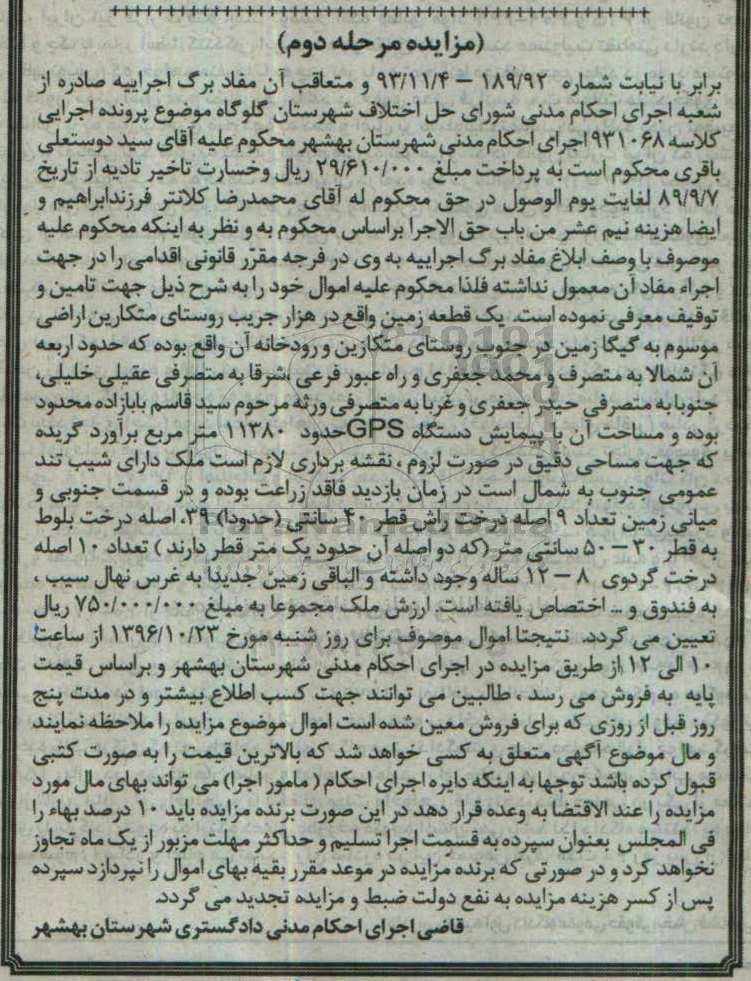 (مزایده مرحله دوم)
برابر با نیابت شماره ۱۸۹/۹۲ – ۹۳/۱۱/۴ و متعاقب آن مفاد برگ اجراییه صادره از
شعبه اجرای احکام مدنی شورای حل اختلاف شهرستان گلوگاه موضوع پرونده اجرایی
کلاسه ۹۳۱۰۶۸ اجرای احکام مدنی شهرستان بهشهر محکوم علیه آقای سید دوستعلی
باقری محکوم است به پرداخت مبلغ ۲۹/۶۱۰/۰۰۰ ریال وخسارت تاخیر تادیه از تاریخ
۸۹/۹/۷ لغایت یوم الوصول در حق محکوم له آقای محمدرضا کلانتر فرزندابراهیم و
ایضا هزینه نیم عشر من باب حق الاجرا براساس محکوم به و نظر به اینکه محکوم علیه
موصوف با وصف ابلاغ مفاد برگ اجراییه به وی در فرجه مقرر قانونی اقدامی را در جهت
اجراء مفاد آن معمول نداشته فلذا محکوم علیه اموال خود را به شرح ذیل جهت تامین و
توقیف معرفی نموده است. یک قطعه زمین واقع در هزار جریب روستای متکازین اراضی
موسوم به گیگا زمین در جنوب روستای متکازین و رودخانه آن واقع بوده که حدود اربعه
آن شمالا به متصرف و محمد جعفری و راه عبور فرعی ،شرقا به متصرفی عقیلی خلیلی،
جنوبا به متصرفی حیدر جعفری و غربا به متصرفی ورثه مرحوم سید قاسم بابازاده محدود
بوده و مساحت آن با پیمایش دستگاه GPS حدود ۱۱۳۸۰ متر مربع برآورد گردیده
که جهت مساحی دقیق در صورت لزوم ، نقشه برداری لازم است ملک دارای شیب تند
عمومی جنوب به شمال است در زمان بازدید فاقد زراعت بوده و در قسمت جنوبی و
میانی زمین تعداد ۹ اصله درخت راش قطر ۴۰ سانتی (حدودا) ۳۹، اصله درخت بلوط
به قطر ۳۰ – ۵۰ سانتی متر (که دو اصله آن حدود یک متر قطر دارند ) تعداد ۱۰ اصله
درخت گردوی ۸ – ۱۲ ساله وجود داشته و الباقی زمین جدیدا به غرس نهال سیب ،
به فندوق و ... اختصاص یافته است. ارزش ملک مجموعا به مبلغ ۷۵۰/۰۰۰/۰۰۰ ریال
تعیین می گردد. نتیجتا اموال موصوف برای روز شنبه مورخ ۱۳۹۶/۱۰/۲۳ از ساعت
۱۰ الی ۱۲ از طریق مزایده در اجرای احکام مدنی شهرستان بهشهر و براساس قیمت
پایه به فروش می رسد ، طالبین می توانند جهت کسب اطلاع بیشتر و در مدت پنج
روز قبل از روزی که برای فروش معین شده است اموال موضوع مزایده را ملاحظه نمایند
و مال موضوع آگهی متعلق به کسی خواهد شد که بالاترین قیمت را به صورت کتبی
قبول کرده باشد توجها به اینکه دایره اجرای احکام ( مامور اجرا) می تواند بهای مال مورد
مزایده را عند الاقتضا به وعده قرار دهد در این صورت برنده مزایده باید ۱۰ درصد بهاء را
فی المجلس بعنوان سپرده به قسمت اجرا تسلیم و حداکثر مهلت مزبور از یک ماه تجاوز
نخواهد کرد و در صورتی که برنده مزایده در موعد مقرر بقیه بهای اموال را نپردازد سپرده
پس از کسر هزینه مزایده به نفع دولت ضبط و مزایده تجدید می گردد.
قاضی اجرای احکام مدنی دادگستری شهرستان بهشهر